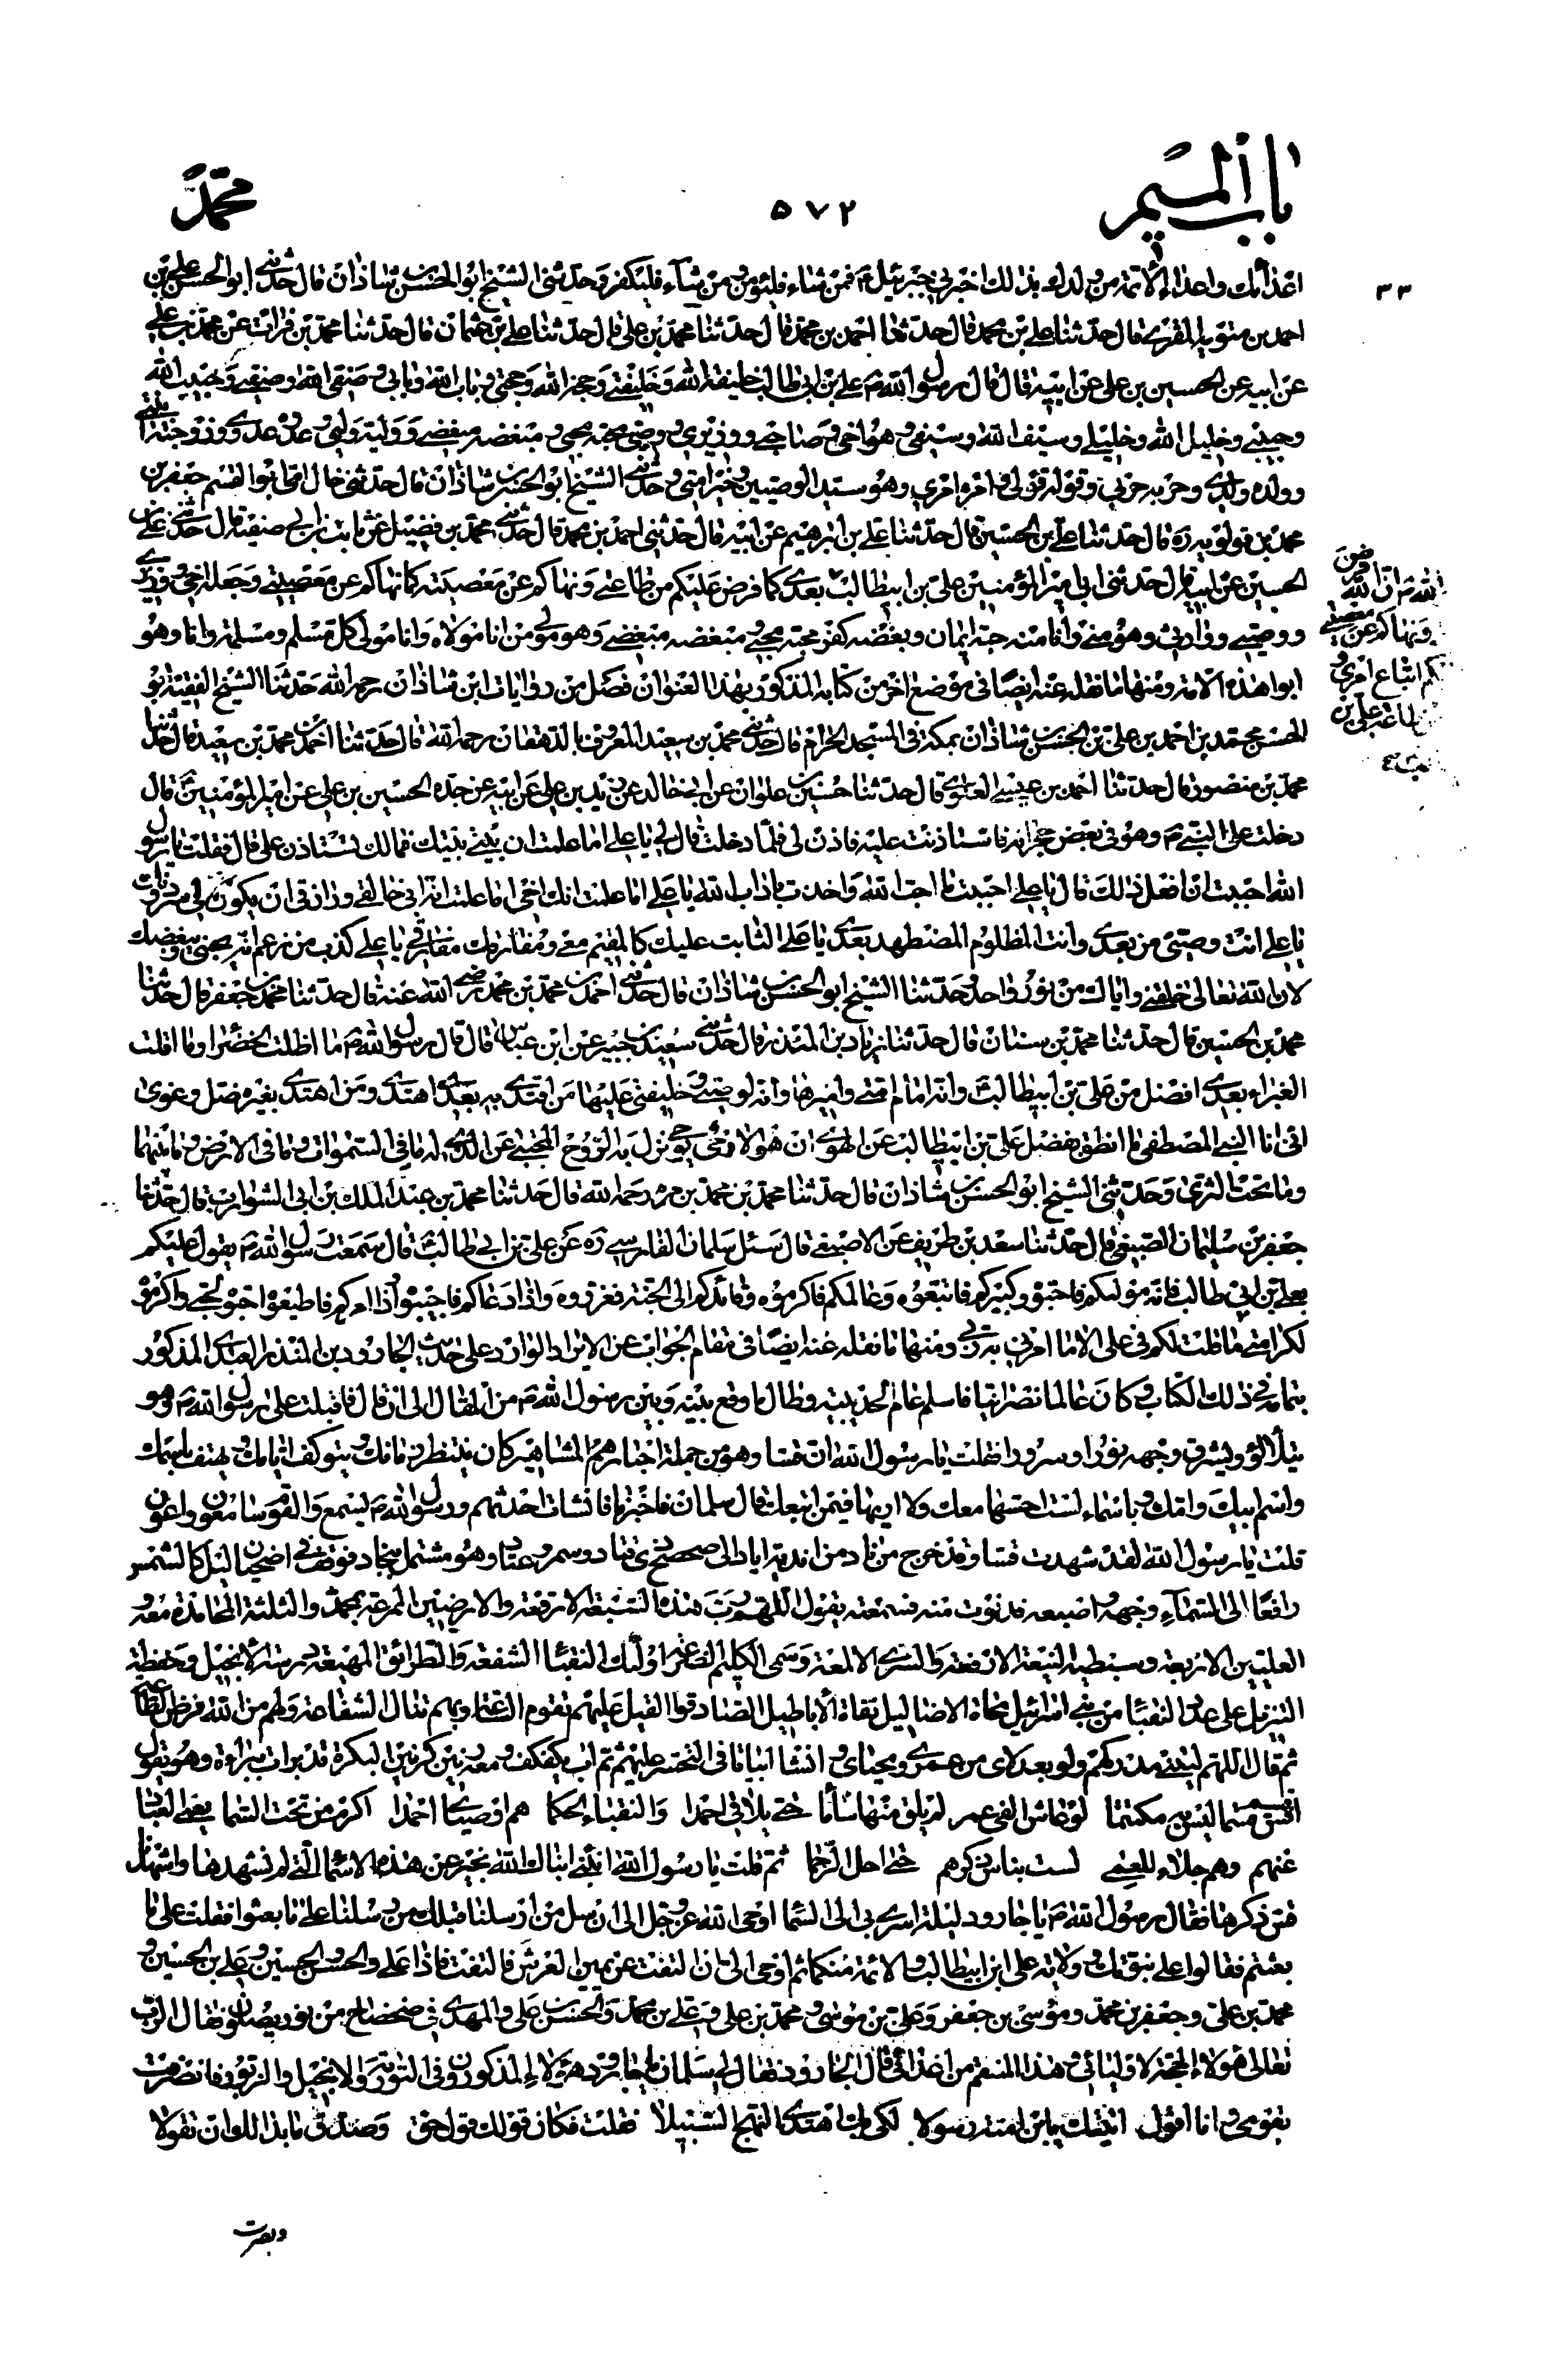 باب الميم
٥٧٢
محمد
اعدائك واعداء الأئمة من ولدك بذلك اخبرني جبرئيل فمن شاء فليؤمن ومن شاء فليكفر وحدثني الشيخ ابو الحسن بن شاذان قال حدثني ابو الحسن علي بن
احمد بن متويه المقري قال حدثنا علي بن محمد قال حدثنا احمد بن محمد قال حدثنا محمد بن علي قال حدثنا علي بن عثمان قال حدثنا محمد بن فرات عن محمد بن علي
عن ابيه عن الحسين بن علي عن ابيه قال قال رسول الله ص علي بن ابي طالب خليفة الله وخليفتي وحجة الله وحجتي وباب الله وبابي وصفي الله وصفيي وحبيب الله
وحبيبي وخليل الله وخليلي وسيف الله وسيفي وهو اخي وصاحبي ووزيري ووصيي محبه محبي ومبغضه مبغضي ووليه وليي وعدوه عدوي وزوجته ابنتي
وولده ولدي وحزبه حزبي وقوله قولي وامره امري وهو سيد الوصيين وخير امتي وحدثني الشيخ ابو الحسن بن شاذان قال حدثني خال امي ابو القسم جعفر بن
محمد بن قولويه ره قال حدثنا علي بن الحسين قال حدثنا علي بن ابرهيم عن ابيه قال حدثني احمد بن محمد قال حدثني محمد بن فضيل عن ثابت بن ابي صفية قال حدثني علي بن
الحسين عن ابيه قال حدثني ابي امير المؤمنين علي بن ابيطالب بعدي كما فرض عليكم من طاعتي ونهاكم عن معصيته كما نهاكم عن معصيتي وجعله اخي ووزيري
ووصيي ووارثي وهو مني وانا منه حبه ايمان وبغضه كفر محبه محبي ومبغضه مبغضي وهو مولى من انا مولاه وانا مولى كل مسلم ومسلمة وانا وهو
ابوا هذه الامة ومنها ما نقله عنه ايضا في موضع اخر من كتابه المذكور بهذا العنوان فصل من روايات ابن شاذان رحمه الله حدثنا الشيخ الفقيه ابو
الحسن محمد بن احمد بن علي بن الحسن بن شاذان بمكة في المسجد الحرام قال حدثني محمد بن سعيد المعروف بالدهقان رحمه الله قال حدثنا احمد بن محمد بن سعيد قال حدثنا
محمد بن منصور قال حدثنا احمد بن عيسى العلوي قال حدثنا حسين بن علوان عن ابي خالد عن زيد بن علي عن ابيه عن جده الحسين بن علي عن امير المؤمنين قال
دخلت على النبي ص وهو في بعض حجراته فاستاذنت عليه فاذن لي فلما دخلت قال لي يا علي اما علمت ان بيتي بيتك فمالك تستاذن علي قال فقلت يا رسول
الله احببت ان افعل ذلك قال يا علي احببت ما احب الله واخذت باداب الله يا علي اما علمت انك اخي اما علمت انه ابى خالقي ورازقي ان يكون لي سر دونك
يا علي انت وصيي من بعدي وانت المظلوم المضطهد بعدي يا علي الثابت عليك كالمقيم معي ومفارقك مفارقي يا علي كذب من زعم انه يحبني ويبغضك
لان الله تعالى خلقني واياك من نور واحد وحدثنا الشيخ ابو الحسن بن شاذان قال حدثني احمد بن محمد بن محمد رضي الله عنه قال حدثنا محمد بن جعفر قال حدثنا
محمد بن الحسين قال حدثنا محمد بن سنان قال حدثنا زياد بن المنذر قال حدثني سعيد بن جبير عن ابن عباس قال قال رسول الله ص ما اظلت الخضراء وما اقلت
الغبراء بعدي افضل من علي بن ابيطالب وانه امام امتي واميرها وانه لوصيي وخليفتي عليها من اقتدى به بعدي اهتدى ومن اهتدى بغيره ضل وغوى
اني انا النبي المصطفى ما انطق بفضل علي بن ابيطالب عن الهوى ان هو الا وحي يوحى نزل به الروح المجتبى عن الذي له ما في السموات وما في الارض وما بينهما
وما تحت الثرى وحدثني الشيخ ابو الحسن بن شاذان قال حدثنا محمد بن محمد بن مرة رحمه الله قال حدثنا محمد بن عبد الملك بن ابي الشوارب قال حدثنا
جعفر بن سليمان الضبيعي قال حدثنا سعد بن طريف عن الاصبغ قال سئل سلمان الفارسي ره عن علي بن ابي طالب قال سمعت رسول الله ص يقول عليكم
بعلي بن ابي طالب فانه مولاكم فاحبوه وكبيركم فاتبعوه وعالمكم فاكرموه وقائدكم الى الجنة فعززوه واذا دعاكم فاجيبوه واذا امركم فاطيعوا احبوه لحبي واكرموه
لكرامتي ما قلت لكم في علي الا ما امرني به ربي ومنها ما نقله عنه ايضا في مقام الجواب عن الايراد الوارد على حديث الجارود بن المنذر العبدي المذكور
بتمامه في ذلك الكتاب وكان عالما نصرانيا فاسلم عام الحديبية وطال ما وقع بينه وبين رسول الله ص من المقال الى ان قال فاقبلت على رسول الله ص وهو
يتلألؤ ويشرق وجهه نورا وسرورا فقلت يا رسول الله ان قسا وهو من جملة اخبارهم المشاهير كان ينتظر زمانك ويتوكف ايامك ويهتف باسمك
واسم ابيك وامك وباسماء لست احسها معك ولا اريها فيمن اتبعك قال سلمان فاخبرنا فانشات احدثهم ورسول الله ص يسمع والقوم سامعون واعون
قلت يا رسول الله لقد شهدت قسا وقد خرج من ناد من اندية اياد الى صحصح ذي قتاد وسمر وعتاد وهو مشتمل بنجاد فوقف في اضحيان ليل كالشمس
رافعا الى السماء وجهه واصبعه فدنوت منه فسمعته يقول اللهم رب هذه السبعة الارقعة والارضين الممرعة بمحمد والثلثة المحامدة معه و
العليين الاربعة وسبطيه النبعة الارفعة والسري الالمعة وسمي الكليم الضرعة اولئك النقباء الشفعة والطرائق المهيعة درسة الانجيل وحفظة
التنزيل على عدد النقباء من بني اسرائيل محاة الاضاليل نفاة الاباطيل الصادقوا القيل عليهم تقوم الساعة وبهم تنال الشفاعة ولهم من الله فرض الطاعة
ثم قال اللهم ليتني مدركهم ولو بعد لاي من عمري ومحياي وانشا ابياتا في التحسر عليهم ثم اب يكفكف دمعه ويرن كرنين البكرة قد برات ببراءة وهو يقول
اقسم قس قسما ليس به مكتتما لو عاش الفي عمر لم يلق منها ساما حتى يلاقي احمدا والنقباء الحكما هم اوصياء احمدا اكرم من تحت السما يعمى العباد
عنهم وهم جلاء للعمى لست بناس ذكرهم حتى احل الرجما ثم قلت يا رسول الله انبئني انباك الله بخبر عن هذه الاسماء التي لم نشهدها واشهدنا
قس ذكرها فقال رسول الله ص يا جارود ليلة اسري بي الى السما اوحى الله عز وجل الى ان سل من ارسلنا قبلك من رسلنا على ما بعثوا فقلت على ما
بعثتم فقالوا على نبوتك وولاية علي ابن ابيطالب والائمة منكما ثم اوحى الى ان التفت عن يمين العرش فالتفت فاذا علي والحسن والحسين وعلي بن الحسين و
محمد بن علي وجعفر بن محمد وموسى بن جعفر وعلي بن موسى ومحمد بن علي وعلي بن محمد والحسن بن علي والمهدي في ضحضاح من نور يصلون فقال الرب
تعالى هؤلاء الحجة لاوليائي وهذا المنتقم من اعدائي قال الجارود فقال لي سلمان يا جارود هؤلاء المذكورون في التورية والانجيل والزبور فانصرفت
بقومي وانا اقول اتيتك يابن امنة رسولا لكي بك اهتدي النهج السبيلا فقلت فكان قولك قول حق وصدق ما بدا لك ان تقولا
وبصرت
٣٣
ونهاكم عن معصيتي
اتباع امري و